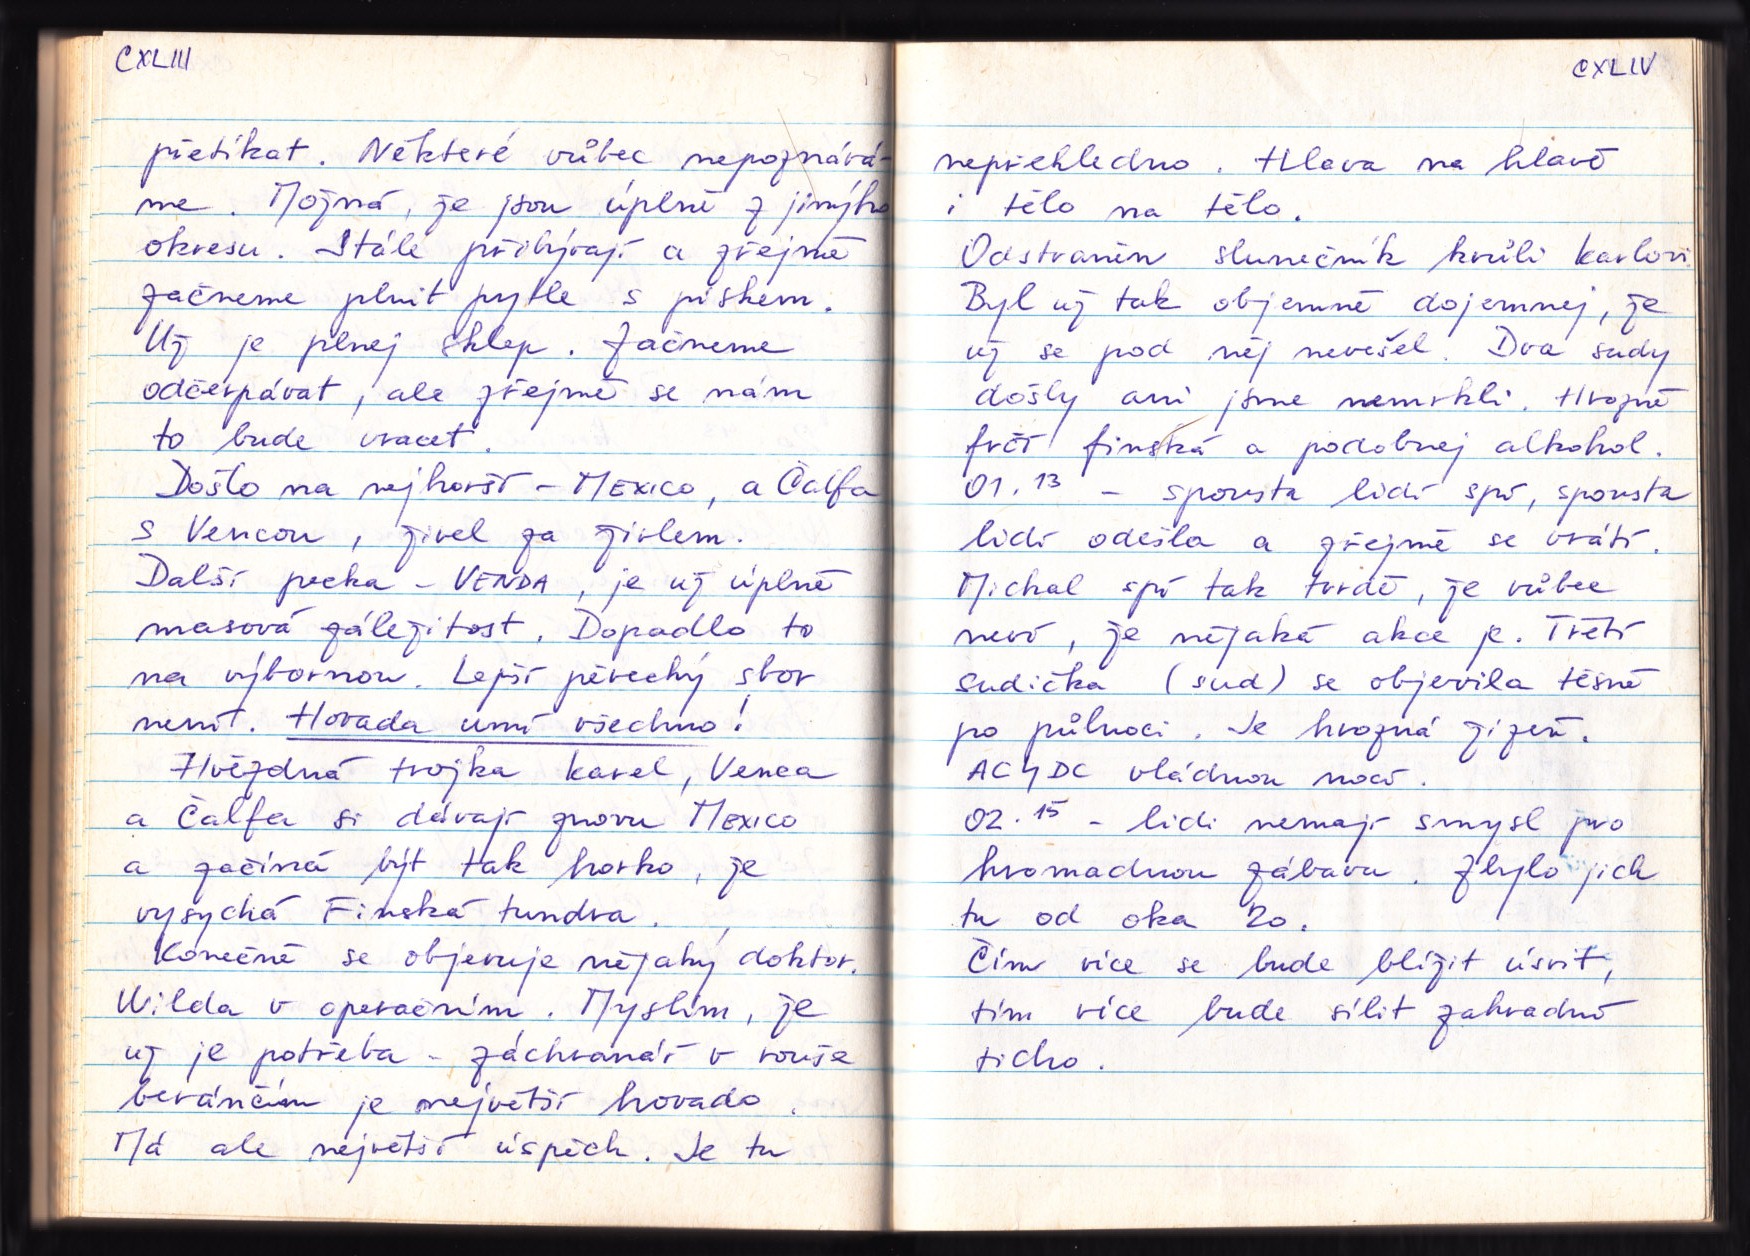 CXLIII
přetékat. Některé vůbec nepoznává-
me. Možná, že jsou úplně z jinýho
okresu. Stále přibývají a zřejmě
začneme plnit pytle s pískem.
Už je plnej sklep. Začneme
odčerpávat, ale zřejmě se nám
to bude vracet.
Došlo na nejhorší - MEXICO, a Čalfa
s Vencou, živel za živlem.
Další pecka - VENDA, je už úplně
masová záležitost. Dopadlo to
na výbornou. Lepší pěvecký sbor
není. Hovada umí všechno!
Hvězdná trojka Karel, Venca
a Čalfa si dávají znovu MEXICO
a začíná být tak horko, že
vysychá Finská tundra.
Konečně se objevuje nějaký doktor.
Wilda v operačním. Myslím, že
už je potřeba - záchranář v rouše
beránčím je největší hovado.
Má ale největší úspěch. Je tu
CXLIV
nepřehledno. Hlava na hlavě
i tělo na tělo.
Odstraněn slunečník kvůli Karlovi.
Byl už tak objemně dojemnej, že
už se pod něj nevešel. Dva sudy
došly ani jsme nemrkli. Hrozně
frčí finská a podobnej alkohol.
01.13 - spousta lidí spí, spousta
lidí odešla a zřejmě se vrátí.
Michal spí tak tvrdě, že vůbec
neví, že nějaká akce je. Třetí
sudička (sud) se objevila těsně
po půlnoci. Je hrozná žízeň.
AC/DC vládnou nocí.
02.15 - lidi nemají smysl pro
hromadnou zábavu. Zbylo jich
tu od oka 20.
Čím více se bude blížit úsvit,
tím více bude sílit zahradní
ticho.